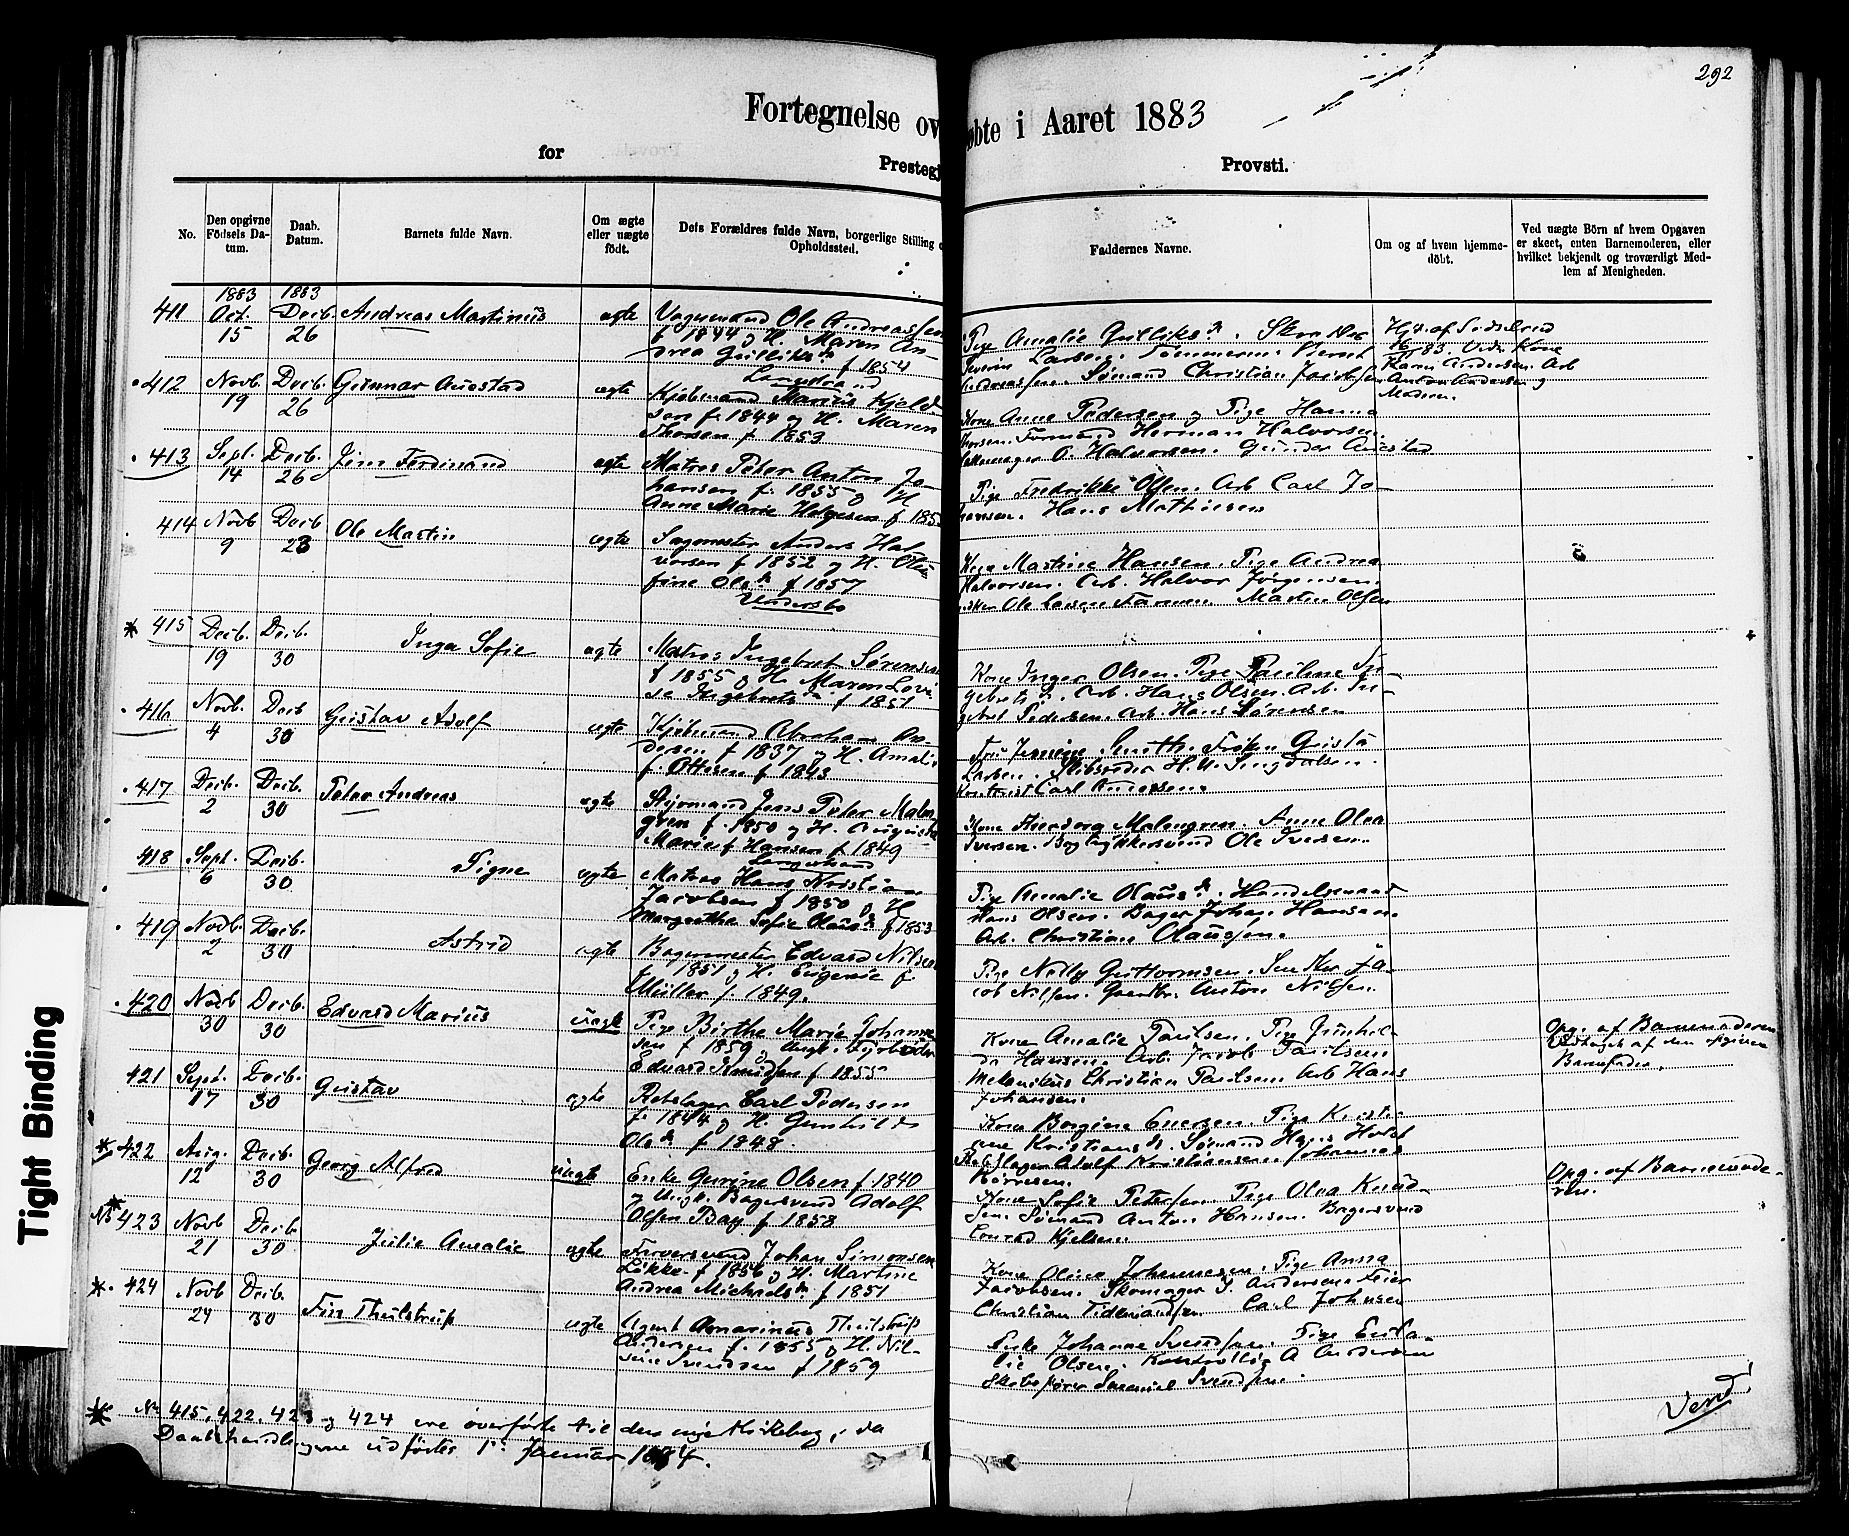 292
Fortegnelse ov
öbte i Aaret 1883
for
Prestegj
Provsti.
No.
Den opgivne Födsels Datum.
Daab. Datum.
Barnets fulde Navn.
Om ægte eller uægte födt.
Dets Forældres fulde Navn, borgerlige Stilling o
Opholdssted.
Faddernes Navne.
Om og af hvem hjemmedöbt.
Ved uægte Börn af hvem Opgaven
er skeet, enten Barnemoderen, eller
hvilket bekjendt og troværdigt Medlem af Menigheden.
1883 1883
411 Oct. 15 Decb. 26 Andreas Martinus ægte
Ole Andreassen
f 1844 og H. Maren An-
drea Gulliksd
f 1854
Langestrand
Pige Amalie Gulliksd.
Severin Larsen. Tømmerm. Bernt
Andreassen. Sømand Christian Jacobsen
83. Kone
Karen Andersen. Arb
Anton Andersen og
Moderen.
412 Novb. 19 Decb. 26 Gunnar Auestad ægte
Kjøbmand Marius Kjeld
sen f. 1844 og H. Maren
Thorsen f. 1853
Kone Anne Pedersen og Pige Hanna
Thorsen. Formand Herman Halvorsen.
O. Halvorsen. Gunder Auestad
413 Sept. 14 Decb. 26 Jim Ferdinand ægte
Matros Peter Anton Jo-
hansen f. 1855 og H
Anne Marie Helgesen f 185
Pige Fredrikke Olsen. Arb Carl Jo-
hansen. Hans Mathiesen
414 Novb 9 Decb 23 Ole Martin ægte
Sagmester Anders Hal
vorsen f 1852 og H. Olu
fine Olsd f 1857
Undersbo
Kone Martine Hansen. Pige Andrea
Halvorsen. Arb. Halvor Jörgensen.
Ole Larsen Farmen. Martin Olsen
* 415 Decb. 19 Decb. 30 Inga Sofie ægte
Matros Ingebret Sørensen
f 1855 og H. Maren Lovi
se Ingebretsd f 1851
Kone Inger Olsen. Pige Pauline In-
gebretsd. Arb. Hans Olsen. Arb. In-
gebret Pedersen. Arb. Hans Sørensen
416 Novb. 4 Decb 30 Gustav Adolf ægte
Kjøbmand Abraham An-
dersen f 1837 og H. Amalie
f. Ottesen f 1843
Fru Jensine Smith. Frøken Gusta
Larsen. Skibsreder H. A.
Kontorist Carl Andersen.
417 Decb. 2 Decb. 30 Peter Andreas ægte
Styrmand Jens Peter Malm
gren f. 1850 og H. Augusta
Marie f Hansen f 1849
Langestrand
Kone Malmgren. Anne Olea
Iversen. Bogtrykkersvend Ole Iversen.
418 Sept. 6 Decb. 30 Signe ægte
Matros Hans Kristian
Jacobsen f 1850 og H
Margrethe Sofie Olausd f 1853
Pige Amalie Olausd. Handelsmand
Hans Olsen. Bager Johan Hansen.
Arb. Christian Olaussen.
419 Novb. 2 Decb. 30 Astrid ægte
Bagermester Edvard Nilsen
f 1851 og H. Eugenie f
Müller f. 1849.
Pige Nelly Guttormsen. Ja-
cob Nilsen. Anton Nilsen.
420 Novb 30 Decb. 30 Edvard Marius uægte
Pige Birthe Marie Johanne
sen f 1859 Ungk. Fyrbøder
Edvard Knudsen f 1855
Kone Amalie Paulsen. Pige Gunhil-
da Hansen. Arb Jacob Paulsen
Mekanikus Christian Paulsen Arb Hans
Johansen.
Opg. af Barnemoderen
Vedtaget af den opgivne
Barnefader.
421 Sept. 17 Decb. 30 Gustav ægte
Rebslager Carl Pedersen
f. 1844 og H. Gunhild
Olsd f 1848.
Kone Borgine Eversen. Pige Kristi-
ne Kristiansd. Sømand Hans Holst
Rebslager Adolf Kristiansen. Johannes
Börresen.
* 422 Aug. 12 Decb. 30 Georg Alfred uægte
Enke Gurine Olsen f 1840
og Ungk. Bagersvend Adolf
Olsen Bay f 1858
Kone Sofie Petersen. Pige Olea Knud-
sen. Sømand Anton Hansen. Bagersvend
Conrad Kjelsen.
Opg. af Barnemode-
ren.
* No 423 Novb 21 Decb. 30 Julie Amalie ægte
Farversvend Johan Simonsen
Løkke f 1856 og H. Martine
Andrea Michaelsd f 1851
Kone Oline Johannesen. Pige Anna
Jacobsen. Skomager S. Andersen. Feier
Christian Tidemandsen Carl Johnsen
* 424 Novb 24 Decb. 30 Fin Thulstrup ægte
Agent Anarinus Thulstrup
Andersen f. 1855 og H. Nil-
sine Svendsen f 1859
Enke Johanne Svendsen. Pige Eula-
lie Olsen. A Andersen
Skibsfører Samuel Svendsen.
* No 415, 422, 423 og 424 ere överförte til den nye Kirkebog, da
Daabshandlingerne udførtes 1ste Januar 1884.
Vend
Tight Binding